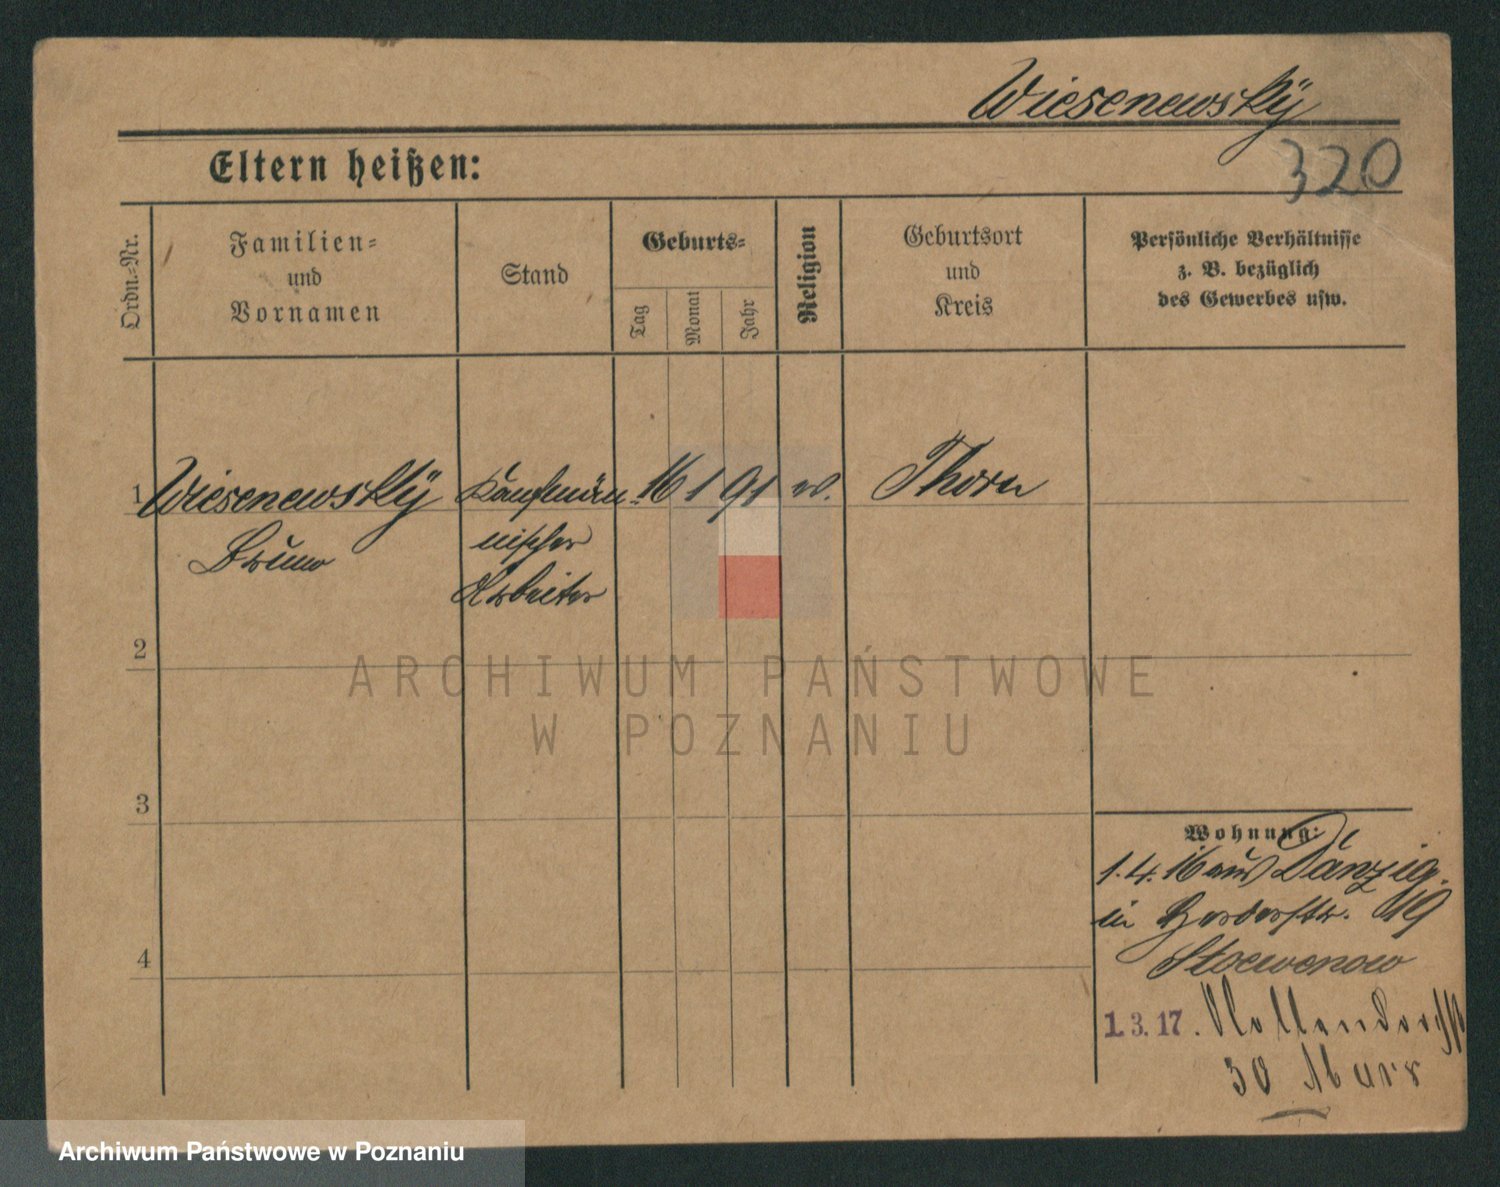 Wiesenewskÿ
320
Eltern heißen:
Ordn.-Nr.
Familien-
und
Vornamen
Stand
Geburts-
Tag
Monat
Jahr
Religion
Geburtsort
und
Kreis
Persönliche Verhältnisse
z. B. bezüglich
des Gewerbes usw.
1 Wiesenewskÿ Kaufmän- 16 1 91 Thorn
Bruno nischer
Arbeiter
2
ARCHIWUM PAŃSTWOWE
W POZNANIU
3
Wohnung:
1.4.16 aus Danzig.
in Herderstr.
Stoewenow
4
1.3.17.
30
Archiwum Państwowe w Poznaniu